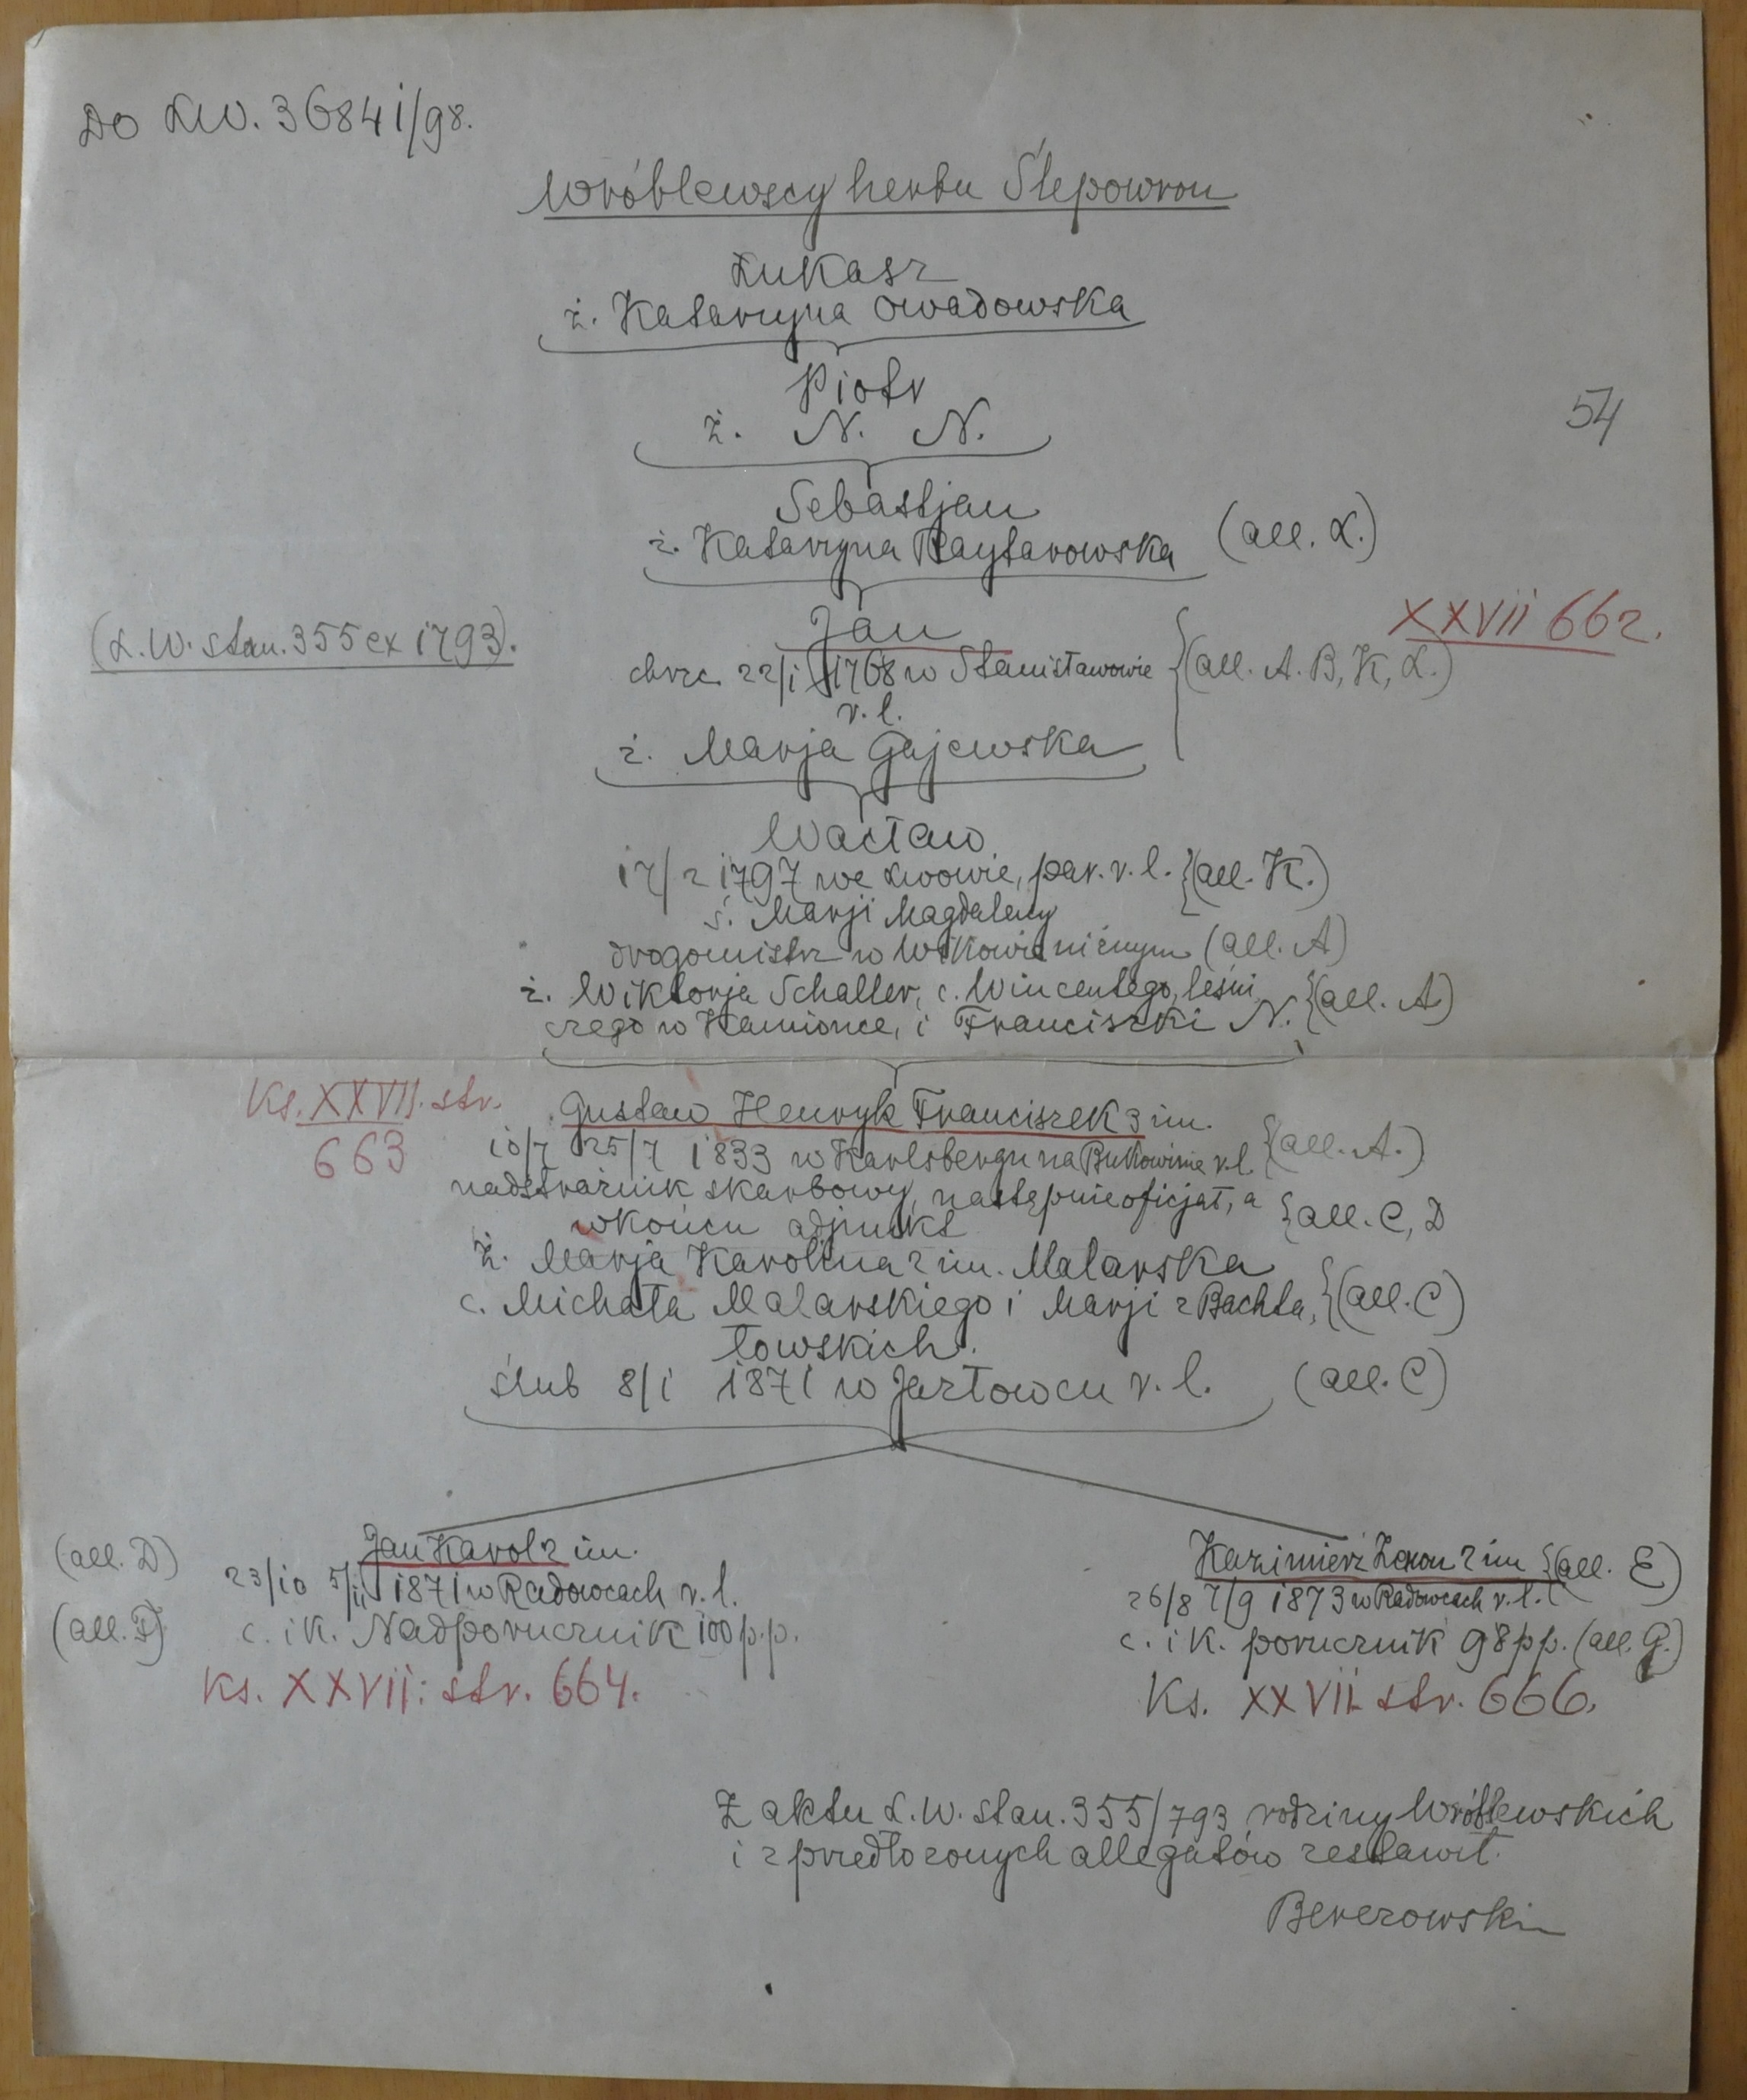 Do LW. 36841/98.
Wróblewscy herbu Ślepowron
Łukasz
ż. Katarzyna Owadowska
Piotr
ż. N. N.
54
Sebastjan
ż. Katarzyna Raytarowska (all. Ł.)
(L.W. stan. 355 ex 1793).
XXVII 662.
Jan
chrzc 22/1 1768 w Stanisławowie (all. A. B, K, Ł.)
r. l.
ż. Marja Gajewska
Wacław
17/2 1797 we Lwowie, par. r. l. (all. K.)
ś. Marji Magdaleny
drogomistrz w Wikowie niżnym (all. A)
ż. Wiktorja Schaller, c. Wincentego, leśni
czego w Kamionce, i Franciszki N. (all. A)
Ks. XXVII. str.
663
Gustaw Henryk Franciszek 3 im.
10/7 25/7 1833 w Karlsbergu na Bukowinie r. l. (all. A.)
nadstrażnik skarbowy, następnie oficjał, a
wkońcu adjunkt (all. C, D
ż. Marja Karolina 2 im. Malarska
c. Michała Malarskiego i Marji z Bachta, (all. C)
łowskich.
ślub 8/1 1871 w Jazłowcu r. l. (all. C)
(all. D) Jan Karol 2 im.
23/10 5/11 1871 w Radowcach r. l.
(all. F) c. i k. Nadporucznik 100 p.p.
Ks. XXVII: str. 664.
Kazimierz Zenon 2 im (all. E)
26/8 7/9 1873 w Radowcach r. l.
c. i k. porucznik 98 pp. (all. G.)
Ks. XXVII str. 666.
Z aktu L.W. stan. 355/793 rodziny Wróblewskich
i z przedłożonych allegatów zestawił.
Berezowski